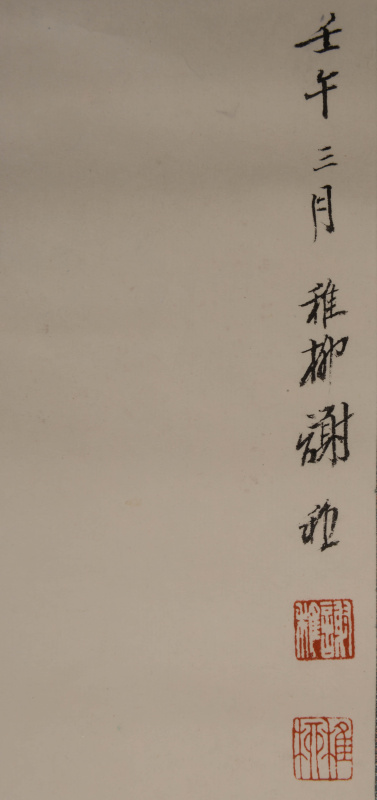 壬午三月稚柳謝稚
謝稚
稚柳